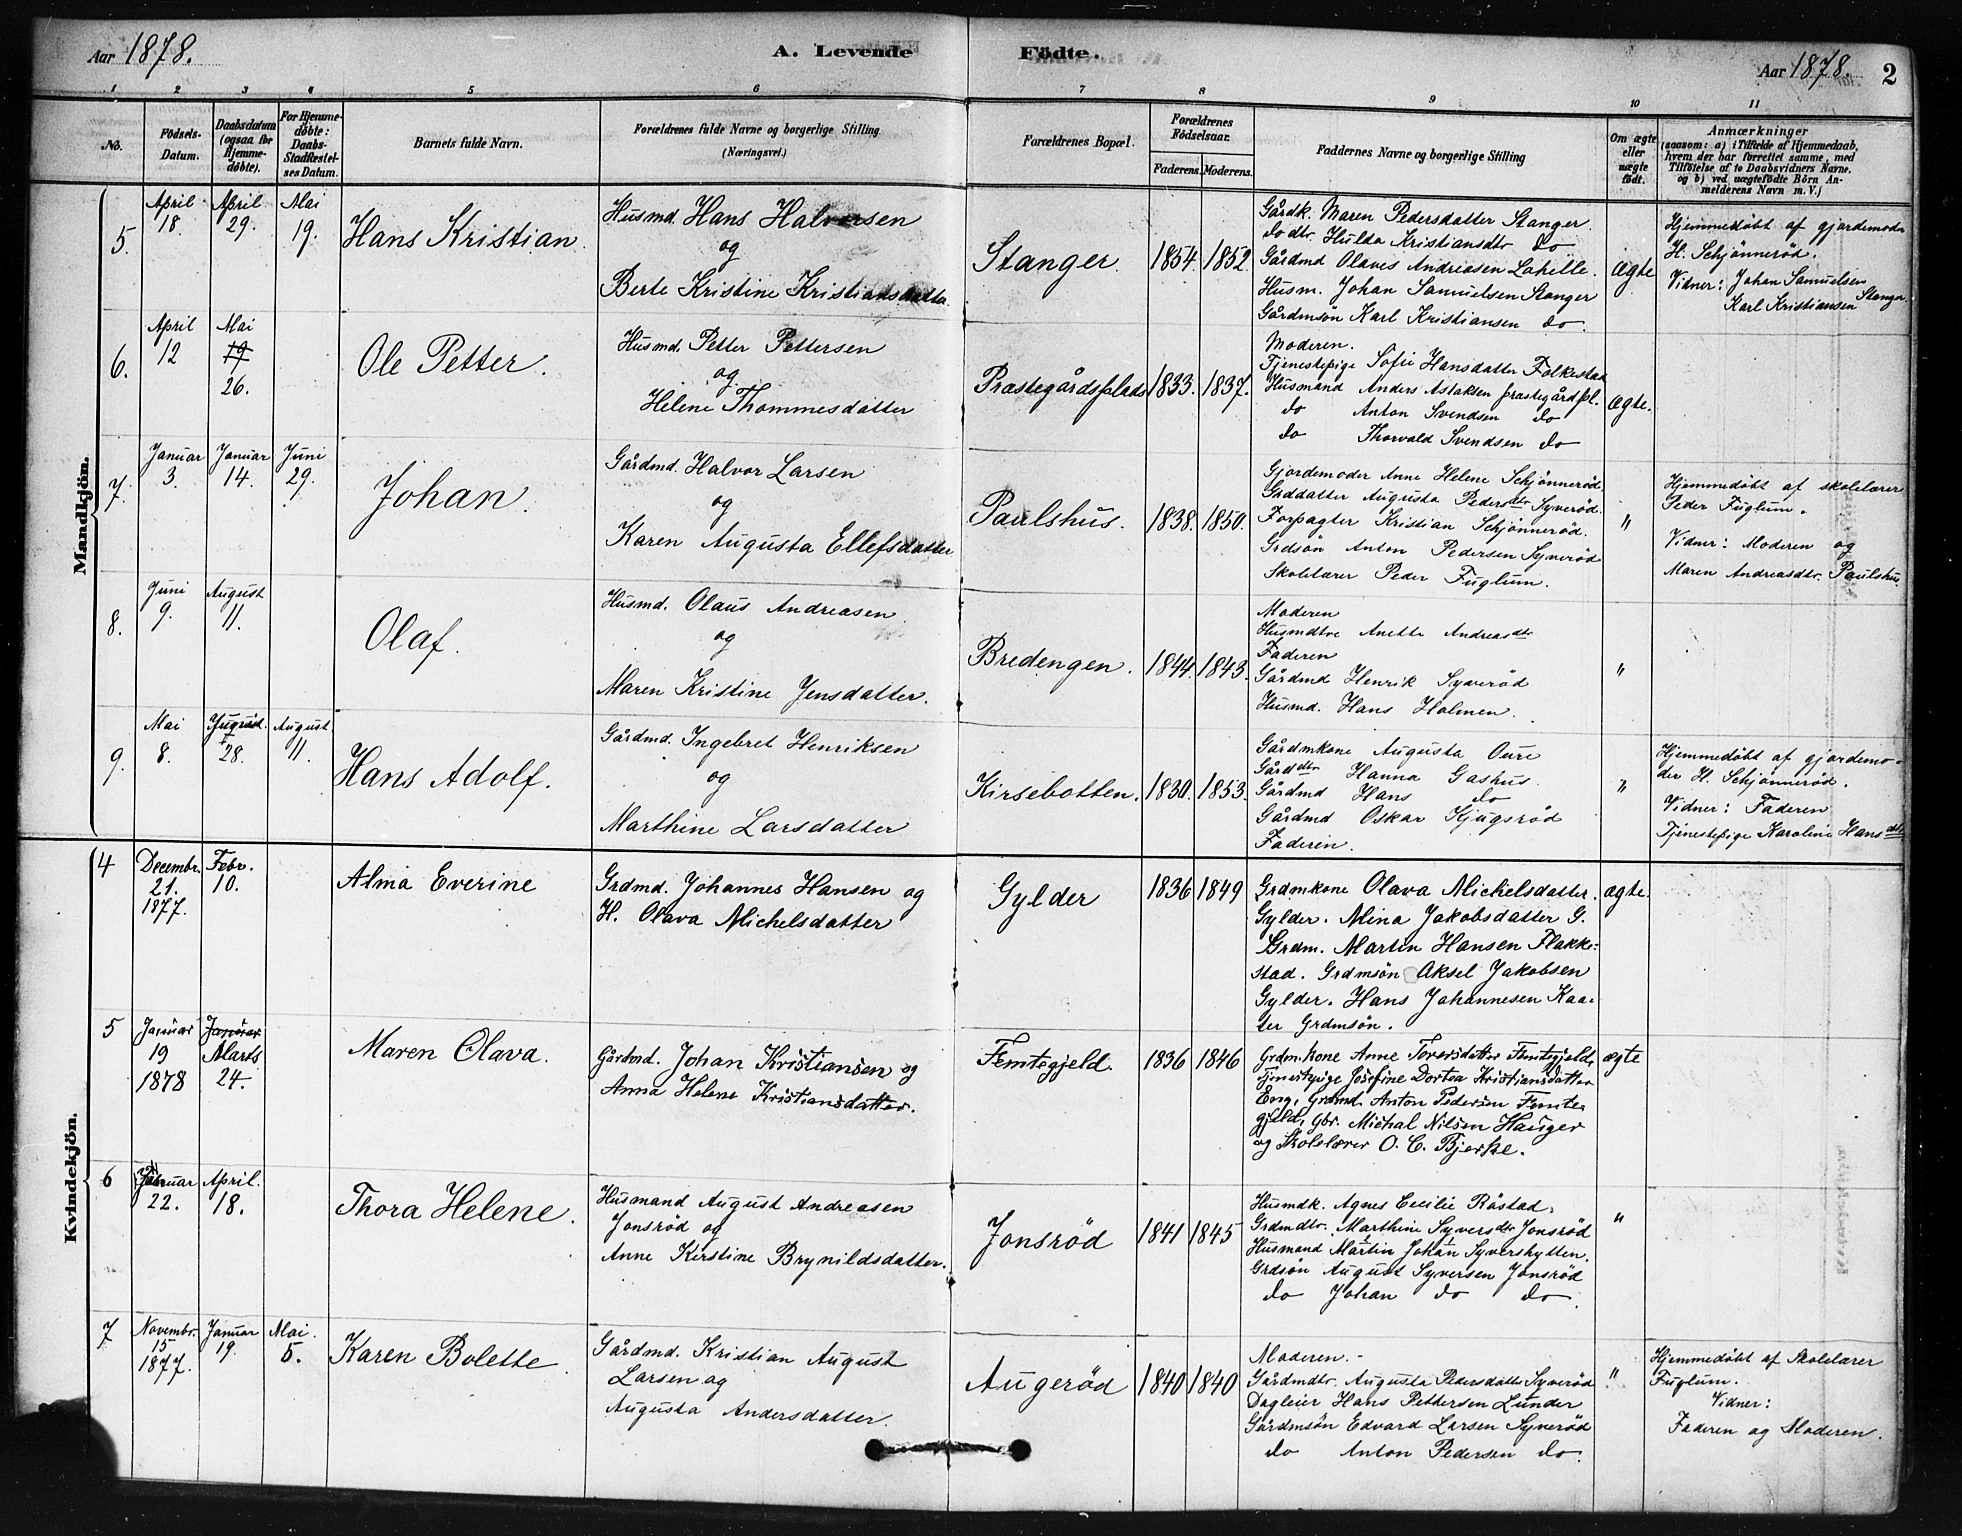 Aar 1878.
A. Levende Födte.
Aar 1878.
2
1 2 3 4 5 6 7 8 9 10 11
No.
Födsels-
Datum.
Daabsdatum
(ogsaa for
Hjemme-
døbte).
For Hjemme-
døbte:
Daabs-
Stadfæstel-
ses Datum.
Barnets fulde Navn.
Forældrenes fulde Navne og borgerlige Stilling.
(Næringsvei.)
Forældrenes Bopæl.
Forældrenes
Födselsaar.
Faderens. Moderens.
Faddernes Navne og borgerlige Stilling
Om ægte
eller
uægte
födt.
Anmærkninger
(saasom: a) i Tilfælde af Hjemmedaab,
hvem der har forrettet samme, med
Tilföielse af to Daabsvidners Navne,
og b) ved uægtefödte Börn An-
melderens Navn m. V.)
Mandkjön.
5.
April
18.
April
29.
Mai
19.
Hans Kristian.
Husmd. Hans Halvorsen
og
Berte Kristine Kristiansdatter.
Stanger.
1854. 1852.
Gårdk. Maren Pedersdatter Stanger.
do dtr. Hulda Kristiansdtr do
Gårdmd Olaves Andreasen Lahelle.
Husm. Johan Samuelsen Stanger
Gårdmsön Karl Kristiansen do.
ægte
Hjemmedöbt af gjordemoder
H. Schjönneröd.
Vidner: Johan Samuelsen
Karl Kristiansen Stanger.
6.
April
12
Mai
19
26.
Ole Petter.
Husmd. Petter Pettersen
og
Helene Thommesdatter
Præstegårdsplads
1833. 1837.
Moderen.
Tjenestepige Sofie Hansdatter Folkestad
Husmand Anders Aslaksen præstegårdspl.
do Anton Svendsen do
do Thorvald Svendsen do
ægte.
7.
Januar
3.
Januar
14.
Juni
29.
Johan.
Gårdmd. Halvor Larsen
og
Karen Augusta Ellefsdatter
Paulshus.
1838. 1850.
Gjordemoder Anne Helene Schjönneröd.
Grddatter Augusta Pedersdtr Syveröd.
Forpagter Kristian Schjönneröd.
Grdsön Anton Pedersen Syveröd
Skolelærer Peder Fuglum.
"
Hjemmedöbt af skolelærer
Peder Fuglum.
Vidner: Moderen og
Maren Andreasdtr. Paulshus.
8.
Juni
9.
August
11.
Olaf.
Husmd. Olaus Andreasen.
og
Maren Kristine Jensdatter.
Bredengen.
1844. 1843.
Moderen
Husmdtre Anette Andreasdtr
Faderen
Gårdmd Henrik Syveröd
Husmd. Hans Holmen.
"
9.
Mai
8.
28.
August
11.
Hans Adolf.
Gårdmd. Ingebret Henriksen
og
Marthine Larsdatter
Kirsebotten.
1830. 1853.
Gårdmkone Augusta Oure
Gårddtr Hanna Gashus.
Gårdmd Hans do
Gårdmd Oskar Hjugsröd
Faderen.
"
Hjemmedöbt af gjordemo-
der H. Schjönneröd.
Vidner: Faderen
Tjenestepige Karoline Hansdtr
Kvindekjön.
4
Decembr.
21.
1877.
Febr.
10.
Alma Everine
Grdmd. Johannes Hansen og
H. Olava Michelsdatter
Gylder
1836 1849
Grdmkone Olava Michelsdatter.
Gylder. Mina Jakobsdatter G.
Grdm. Martin Hansen Flakke-
stad. Grdmsön Aksel Jakobsen
Gylder. Hans Johannesen Kaa-
ter Grdmsön.
ægte.
5
Januar
19
1878
Januar
Marts
24.
Maren Olava.
Gårdmd. Johan Kristiansen og
Anna Helene Kristiansdatter.
Femtegjeld.
1836 1846
Grdm.kone Anne Torersdatter Femtegjeld,
Tjenestepige Josefine Dortea Kristiansdatter
Eng, Grdmd. Anton Pedersen Femte-
gjeld, Gbr. Michal Nilsen Hauger
og Skolelærer O. C. Bjerke.
ægte
6
Januar
22.
April.
18.
Thora Helene.
Husmand August Andreasen
Jonsröd og
Anne Kirstine Brynildsdatter.
Jonsröd
1841 1845
Husmdk. Agnes Cecilie Råstad.
Grdmdtr. Marthine Syversdtr Jonsröd
Husmand Martin Johan Syvershytten.
Grdsön August Syversen Jonsröd
do Johan do do.
"
7
Novembr.
15
1877.
Januar
19.
Mai.
5.
Karen Bolette
Gårdmd. Kristian August
Larsen og
Augusta Andersdatter.
Augeröd
1840 1840
Moderen.-
Gårdmdtr. Augusta Pedersdatter Syveröd
Dagleier Hans Pettersen Lunder
Gårdmsön Edvard Larsen Syveröd
do Anton Pedersen do.
"
Hjemmedöbt af Skolelærer
Fuglum.
Vidner:
Faderen og Moderen.